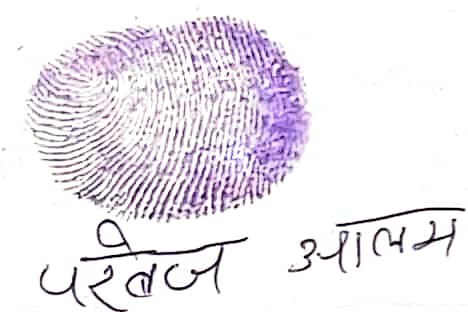 परवेज आलम